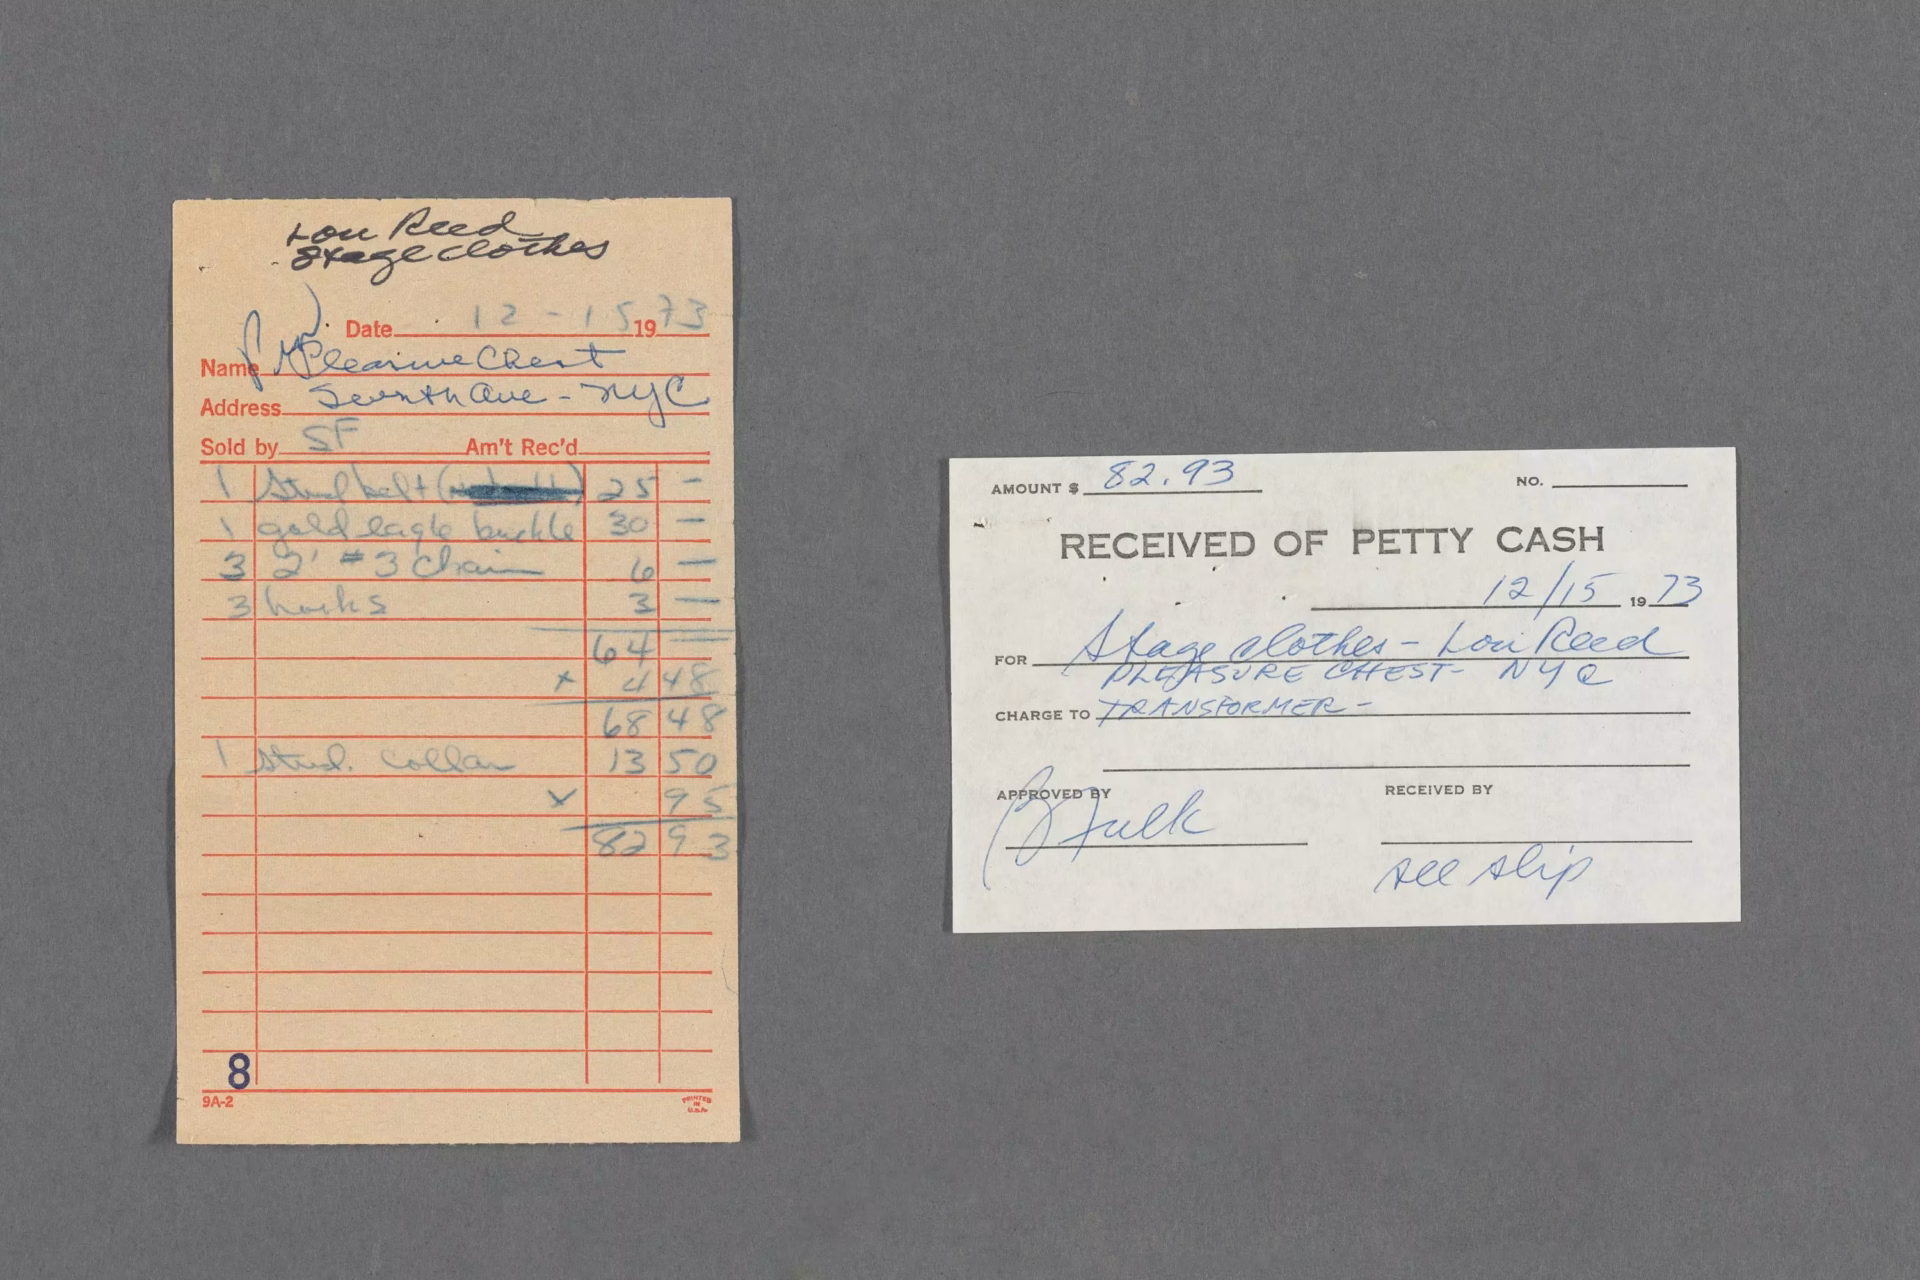 Lou Reed
Stage clothes
Date 12-15 19 73
Name Pleasure Chest
Address Seventh Ave - NYC
Sold by SF Am't Rec'd
1 Stud belt ( ) 25 -
1 gold eagle buckle 30 -
3 2' #3 Chain 6 -
3 hooks 3 -
64
x 4 48
68 48
1 Stud. Collar 13 50
x 95
82 93
8
9A-2
PRINTED
IN
U.S.A.
AMOUNT $ 82.93 NO.
RECEIVED OF PETTY CASH
12/15 19 73
FOR Stage clothes - Lou Reed
PLEASURE CHEST - NYC
CHARGE TO TRANSFORMER -
APPROVED BY RECEIVED BY
B Falk
see slip